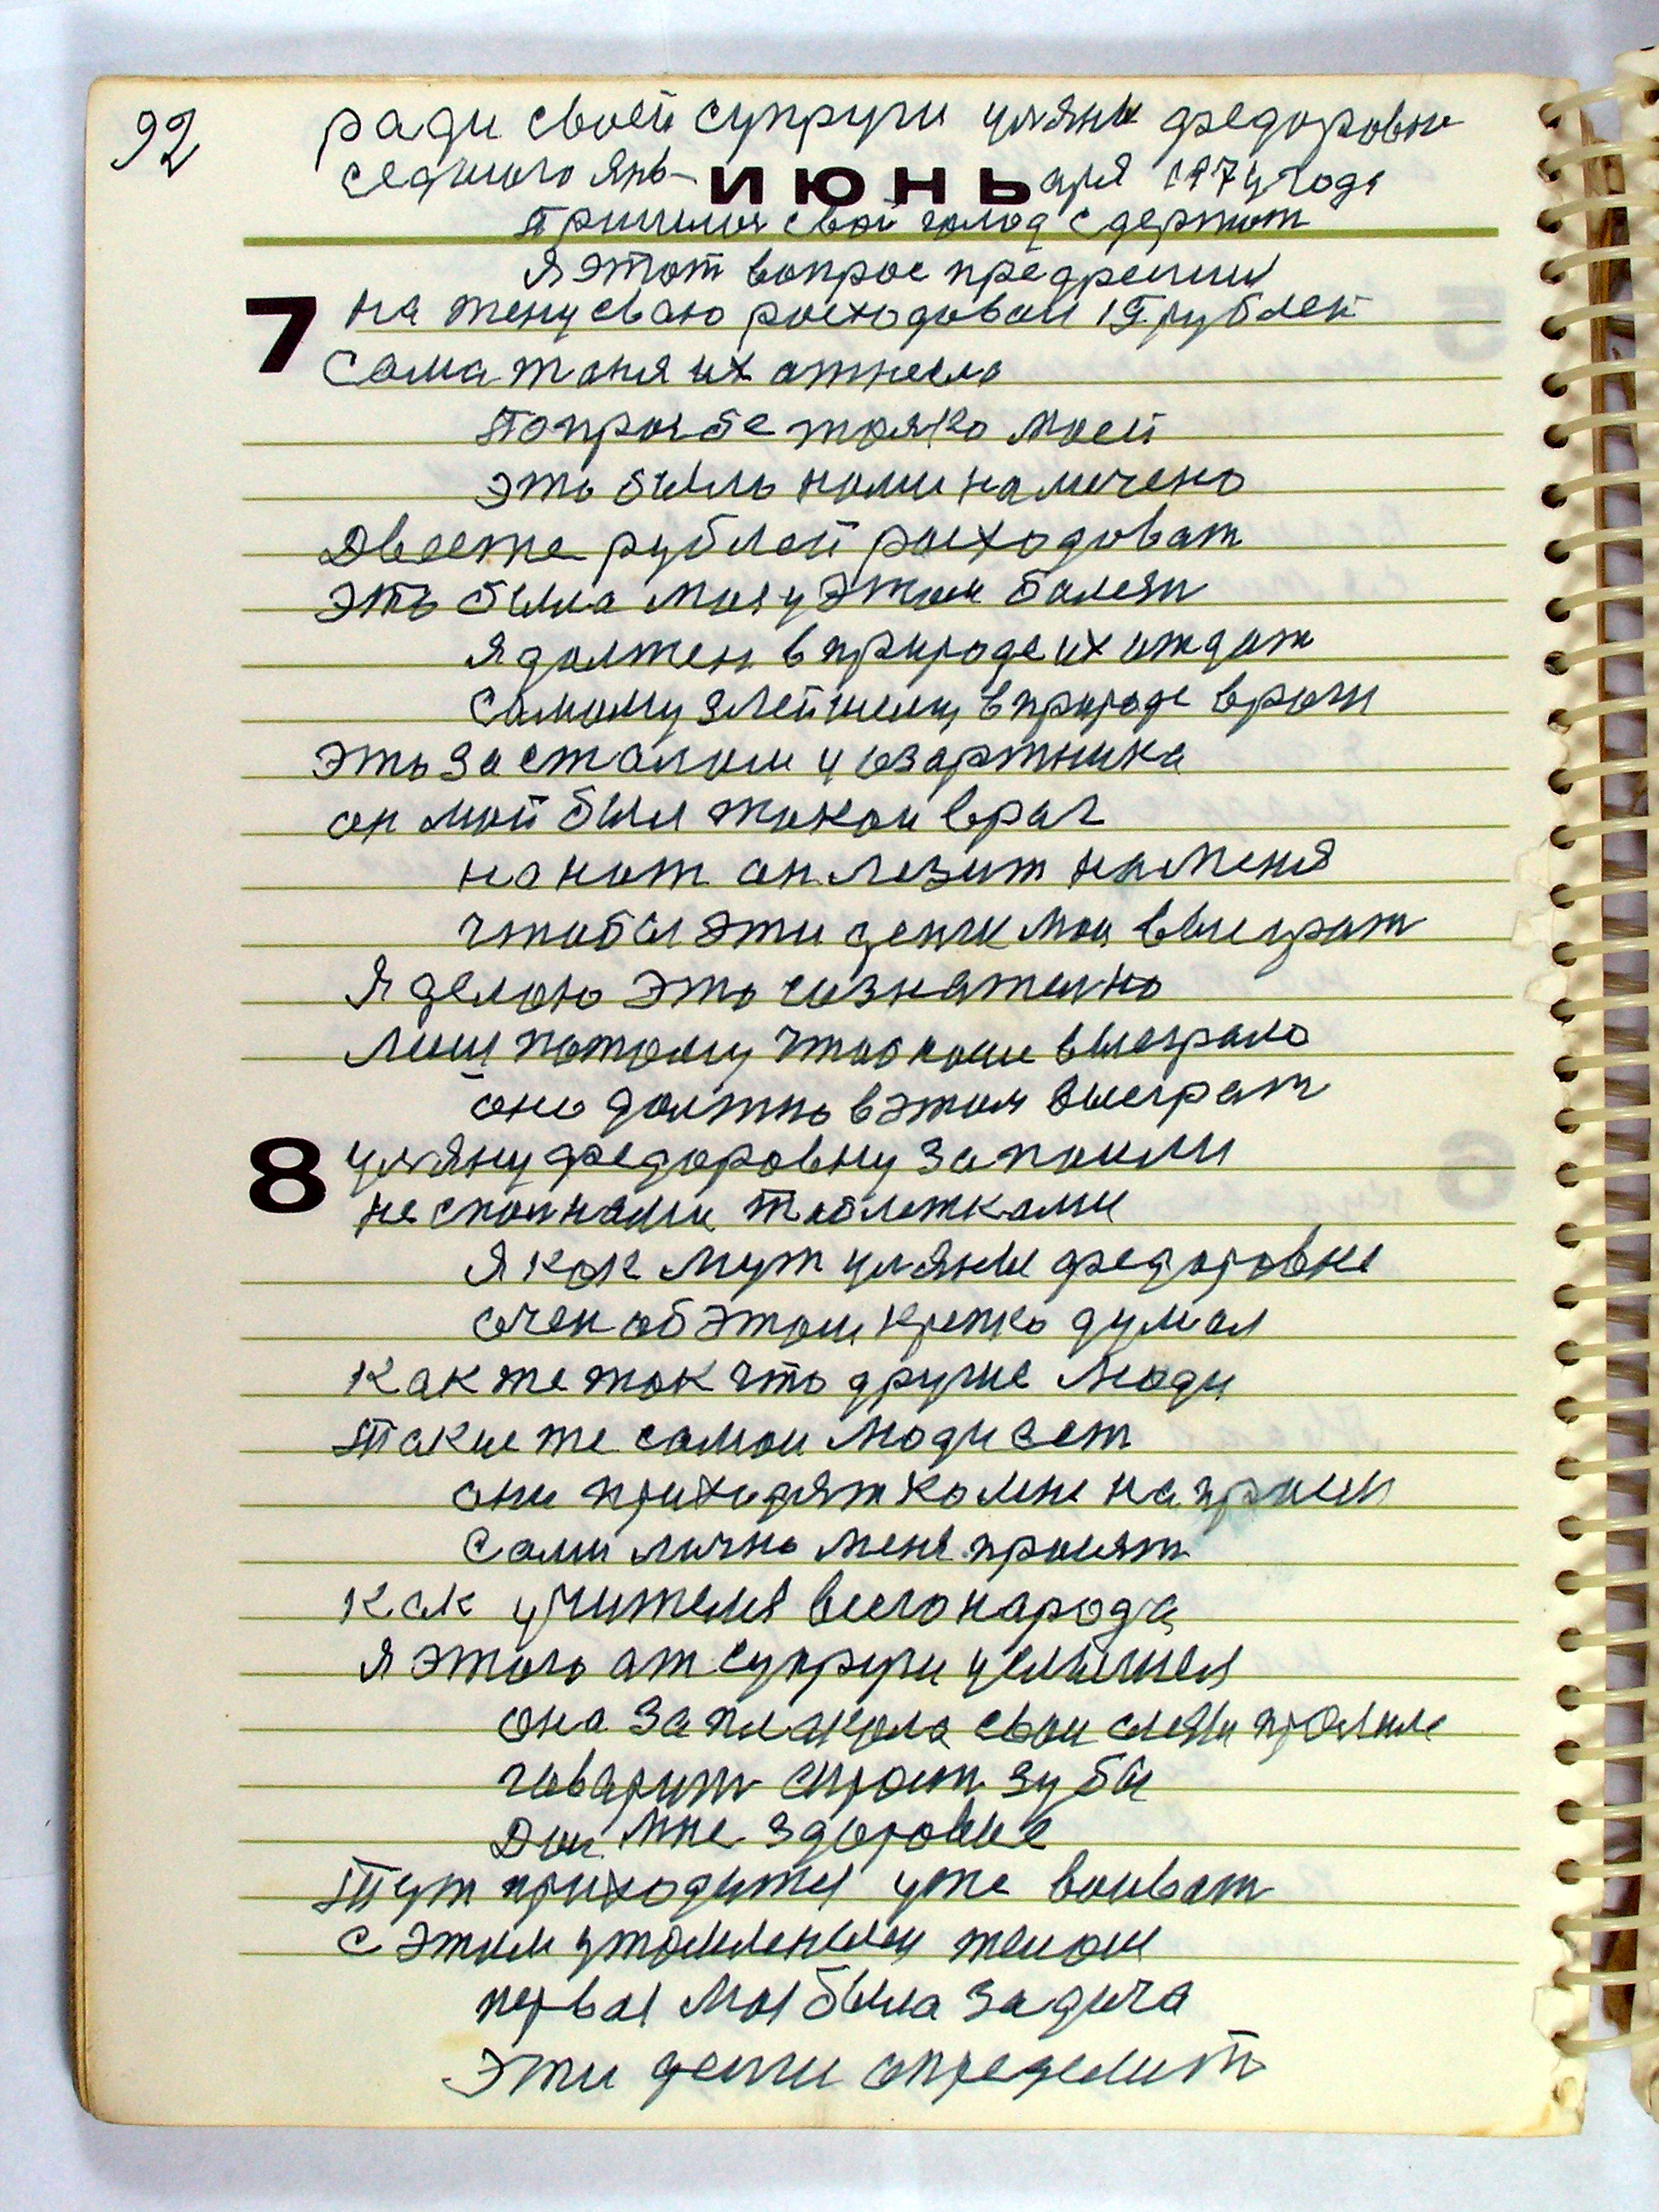 92
ради своей супруги ульяны федоровны
седмого янь- ИЮНЬ аря 1974 года
пришлось свой голод здержат
Я этот вопрос предрешил
7
на жену сваю росходовал рублей
Сама тоня их отнесла
Попрозбе толко моей
это быль нами намечено
Двесте рублей росходоват
Эть была моя у этом болезн
Я должен в природе их отдат
самому злейшему в природе врагу
Эть за сталом у озартника
он мой был такой враг
на кот он лезит на меня
чтобы эти денги мои выеграт
Я делою эть сознателно
Лиш потому чтоб наше выеграло
оно должнь в этом выеграт
8
ульяну федоровну запоили
неспоинами таблетками
Я как муж ульяны федоровны
очен об этом крепко думал
Как же так что другие люди
Такие же самои люди ест
они приходят ко мне на прием
Сами личнь меня просят
Как учителя всего народа
я этогь от супруги услышел
она заплакола свои слезы пролила
говарит строст зубы
Дои мне здоровие
Тут приходится уже воиват
С этим утомленыем телом
первоя моя была задача
Эти денги определит